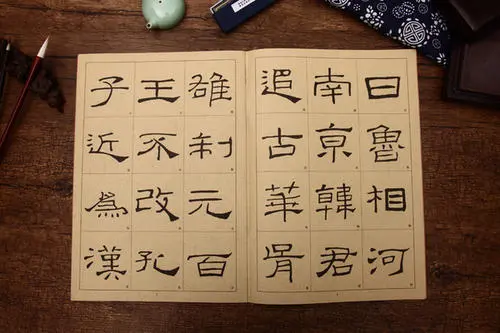 日魯相河
南京韓君
追古華胥
雄制元百
王不改孔
子近為漢